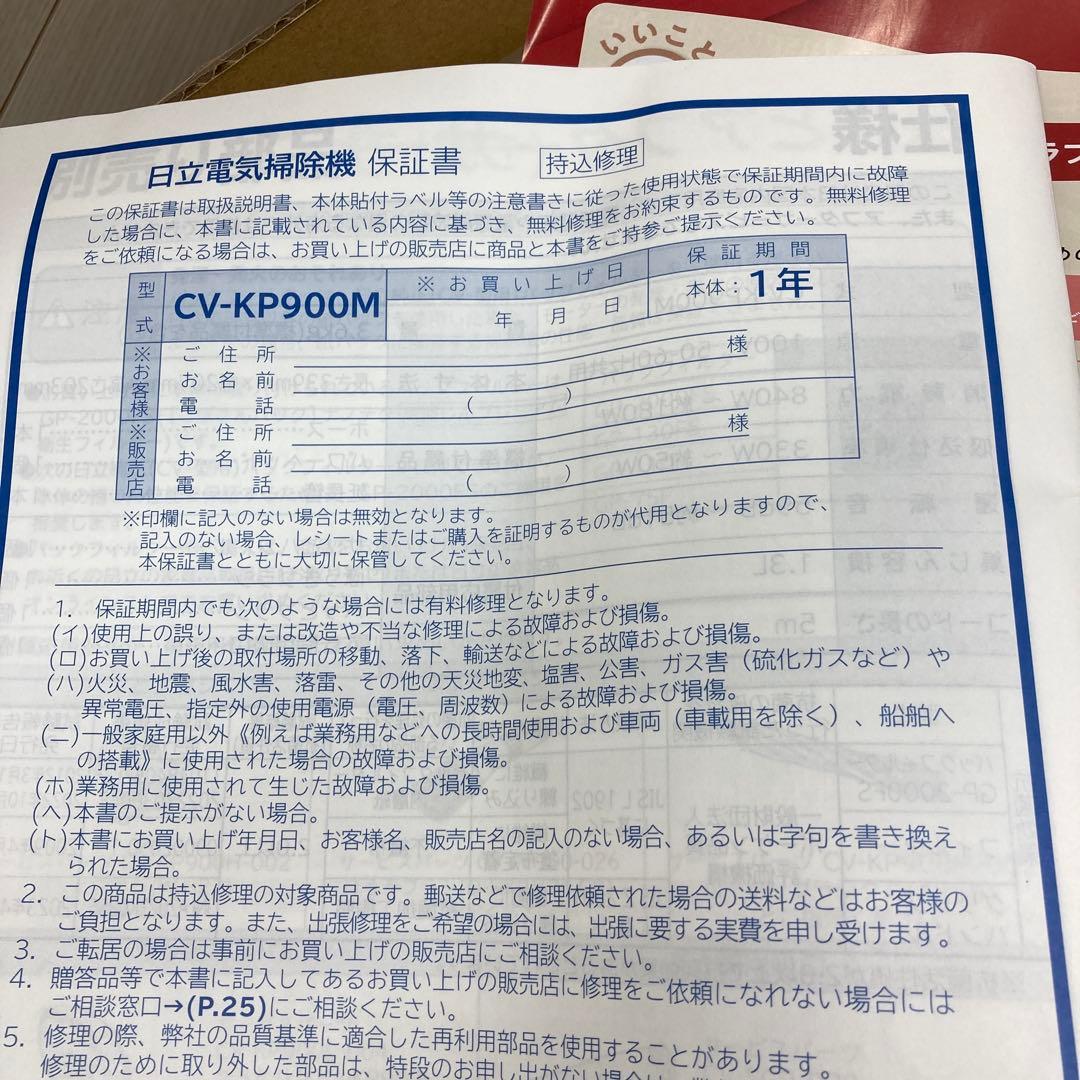 いいこと
日立電気掃除機 保証書 持込修理
この保証書は取扱説明書、本体貼付ラベル等の注意書きに従った使用状態で保証期間内に故障
した場合に、本書に記載されている内容に基づき、無料修理をお約束するものです。無料修理
をご依頼になる場合は、お買い上げの販売店に商品と本書をご持参ご提示ください。
型式 CV-KP900M ※お買い上げ日 保証期間
年 月 日 本体：1年
※お客様 ご住所
お名前 様
電話 ( )
※販売店 ご住所
お名前 様
電話 ( )
※印欄に記入のない場合は無効となります。
記入のない場合、レシートまたはご購入を証明するものが代用となりますので、
本保証書とともに大切に保管してください。
1. 保証期間内でも次のような場合には有料修理となります。
(イ)使用上の誤り、または改造や不当な修理による故障および損傷。
(ロ)お買い上げ後の取付場所の移動、落下、輸送などによる故障および損傷。
(ハ)火災、地震、風水害、落雷、その他の天災地変、塩害、公害、ガス害（硫化ガスなど）や
異常電圧、指定外の使用電源（電圧、周波数）による故障および損傷。
(ニ)一般家庭用以外《例えば業務用などへの長時間使用および車両（車載用を除く）、船舶へ
の搭載》に使用された場合の故障および損傷。
(ホ)業務用に使用されて生じた故障および損傷。
(ヘ)本書のご提示がない場合。
(ト)本書にお買い上げ年月日、お客様名、販売店名の記入のない場合、あるいは字句を書き換え
られた場合。
2. この商品は持込修理の対象商品です。郵送などで修理依頼された場合の送料などはお客様の
ご負担となります。また、出張修理をご希望の場合には、出張に要する実費を申し受けます。
3. ご転居の場合は事前にお買い上げの販売店にご相談ください。
4. 贈答品等で本書に記入してあるお買い上げの販売店に修理をご依頼になれない場合には
ご相談窓口→(P.25)にご相談ください。
5. 修理の際、弊社の品質基準に適合した再利用部品を使用することがあります。
修理のために取り外した部品は、特段のお申し出がない場合は